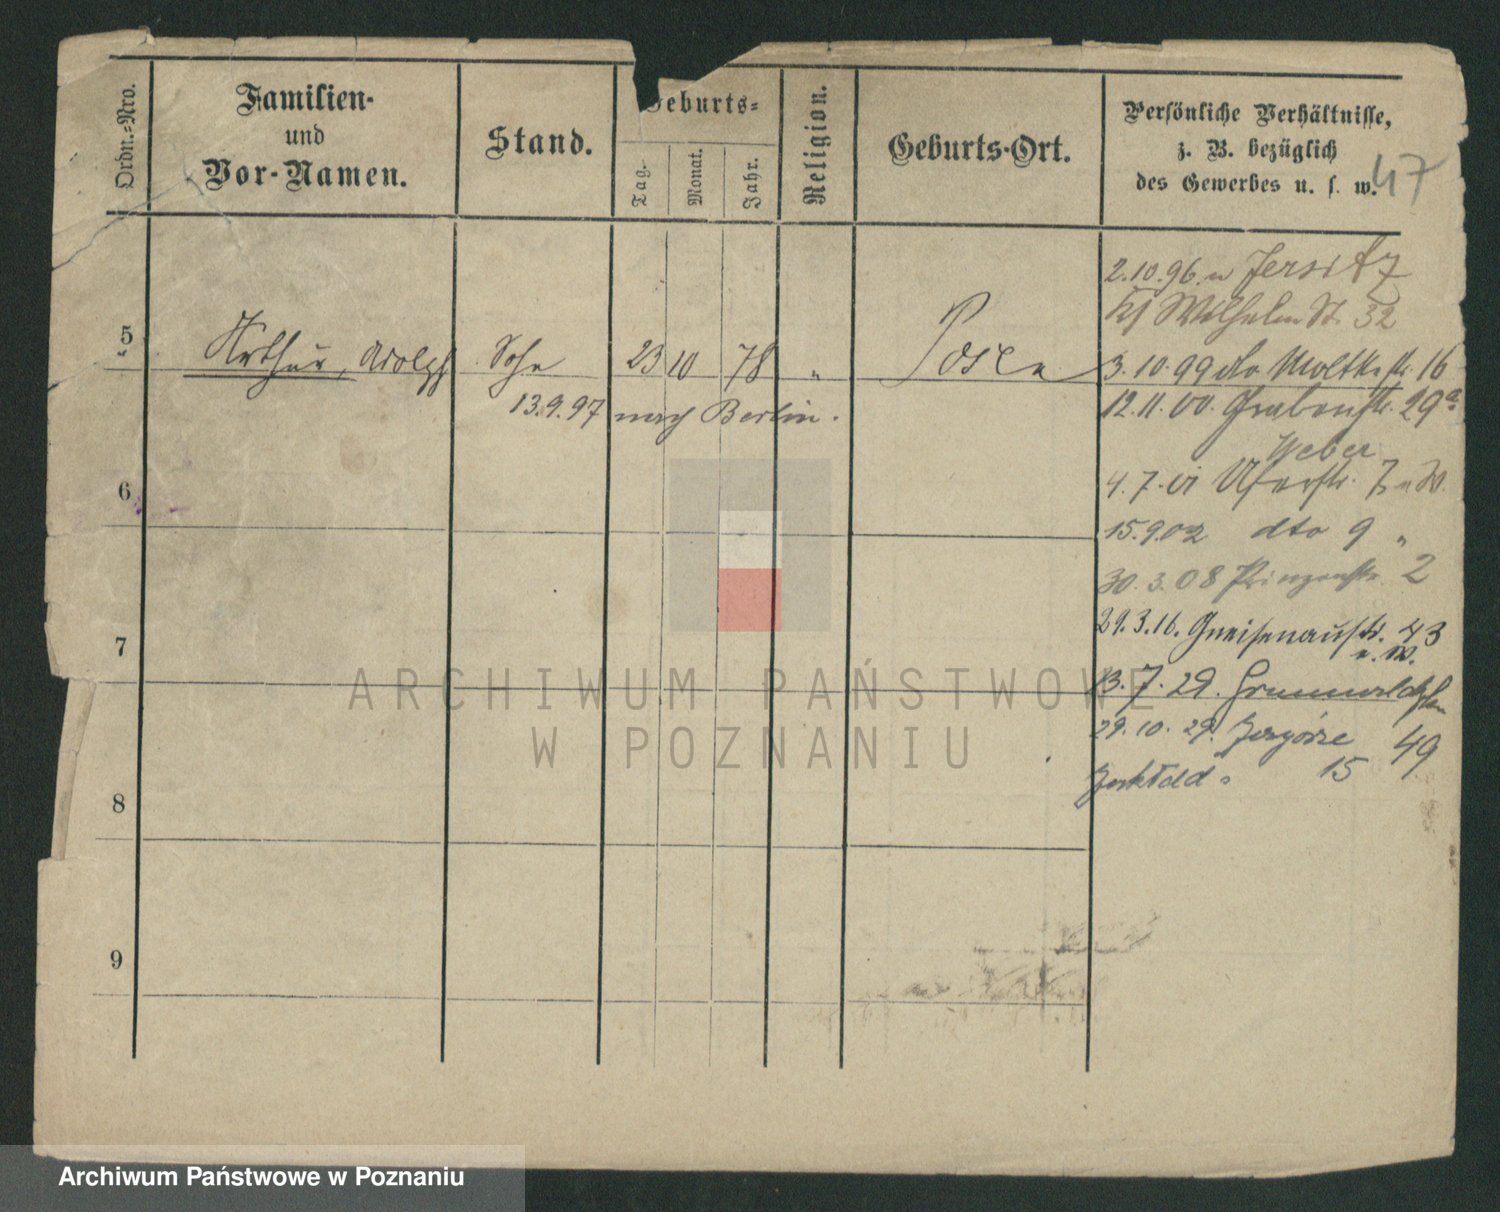 Ordn.=Nro.
Familien-
und
Vor-Namen.
Stand.
Geburts=
Tag.
Monat.
Jahr.
Religion.
Geburts-Ort.
Persönliche Verhältnisse,
z. B. bezüglich
des Gewerbes u. s. w.
47
2.10.96. n Jersitz
Wilhelm St. 32
5 Arthur, Adolph Sohn 23 10 78 " Posen
3.10.99 do Moltkestr. 16
13.9.97 nach Berlin.
12.11.00. Grabenstr. 29a
Weber
6
4.7.01 Uferstr. 7
15.9.02 dto 9 "
30.3.08 Prinzenstr. 2
7
29.3.16. Gneisenaustr. 43
u. W.
13.7.29.
29.10.29. 49
15
8
9
ARCHIWUM PAŃSTWOWE
W POZNANIU
Archiwum Państwowe w Poznaniu